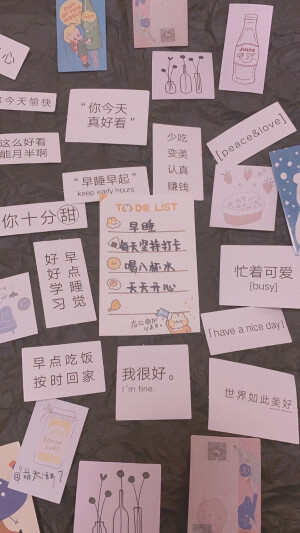 心
Juice
你今天愉快
“你今天
真好看”
少吃
变美
认真
赚钱
[peace&love]
这么好看
能月半啊
“早睡早起”
keep early hours
TO DO LIST
早睡
每天坚持打卡
喝八杯水
天天开心
你十分甜
好好学习
早点睡觉
忙着可爱
[busy]
[have a nice day]
早点吃饭
按时回家
我很好。
I'm fine.
世界如此美好